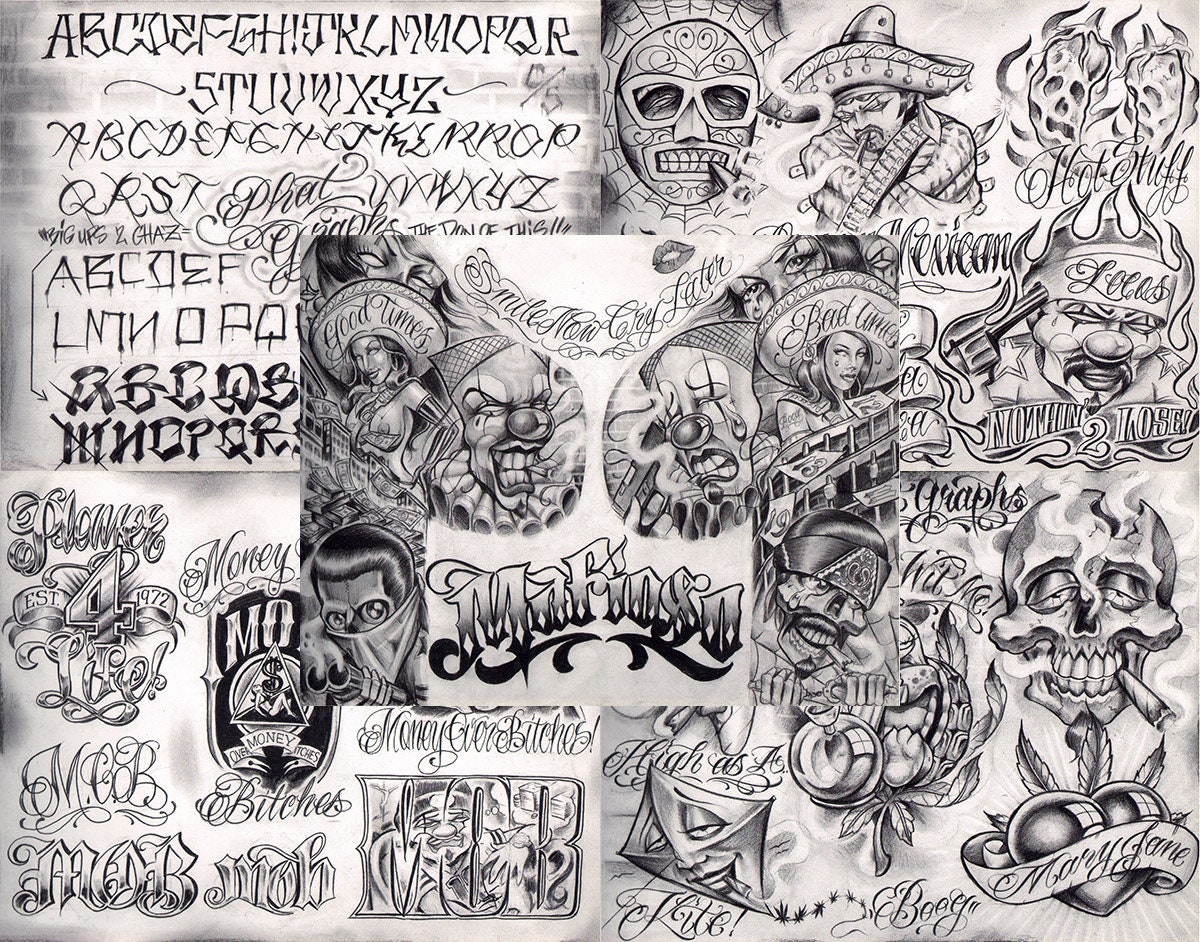 ABCDEFGHIJKLMNOPQR
STUVWXYZ
C/S
ABCDEFGHIJKLMNOP
QRST
Phat
UVWXYZ
"BIG UPS 2 CHAZ=
Graphs
THE DON OF THIS!!"
ABCDEF
LMN O PQ
ABCDE
MNOPQRS
Hot Stuff
Mexican
Locos
NOTHIN 2 LOSE!
Smile Now Cry Later
Good Times
Bad times
Mafioso
Power
EST. 1972
4
Life!
Money
MO
$
OVER MONEY BITCHES
Bitches
M.O.B
MOB
mob
Money Over Bitches!
MOB
graphs
High as A.
Kite!
"Boog"
Mary Jane